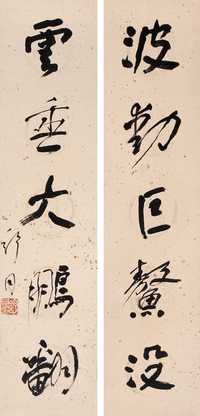 波動巨鰲没
雲垂大鵬翻
舒同